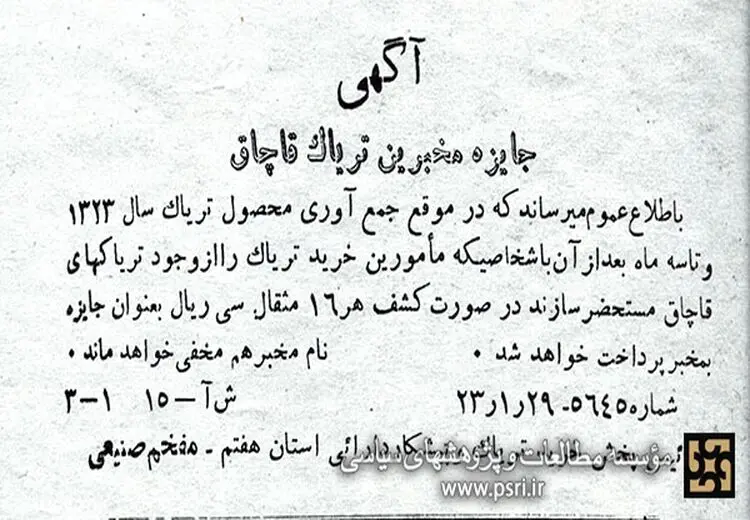 آگهی
جایزه مخبرین تریاك قاچاق
باطلاع عموم میرساند که در موقع جمع آوری محصول تریاك سال ۱۳۲۳
و تا سه ماه بعد از آن باشخاصیکه مأمورین خرید تریاك را از وجود تریاکهای
قاچاق مستحضر سازند در صورت کشف هر ۱۶ مثقال سی ریال بعنوان جایزه
بمخبر پرداخت خواهد شد ۰ نام مخبر هم مخفی خواهد ماند ۰
شماره ۵۶۴۵- ۲۳ر۱ر۲۹ ش آ – ۱۵ ۱–۳
پخش تریاك دارائی استان هفتم - مفخم صنیعی
مؤسسه مطالعات و پژوهشهای سیاسی
www.psri.ir